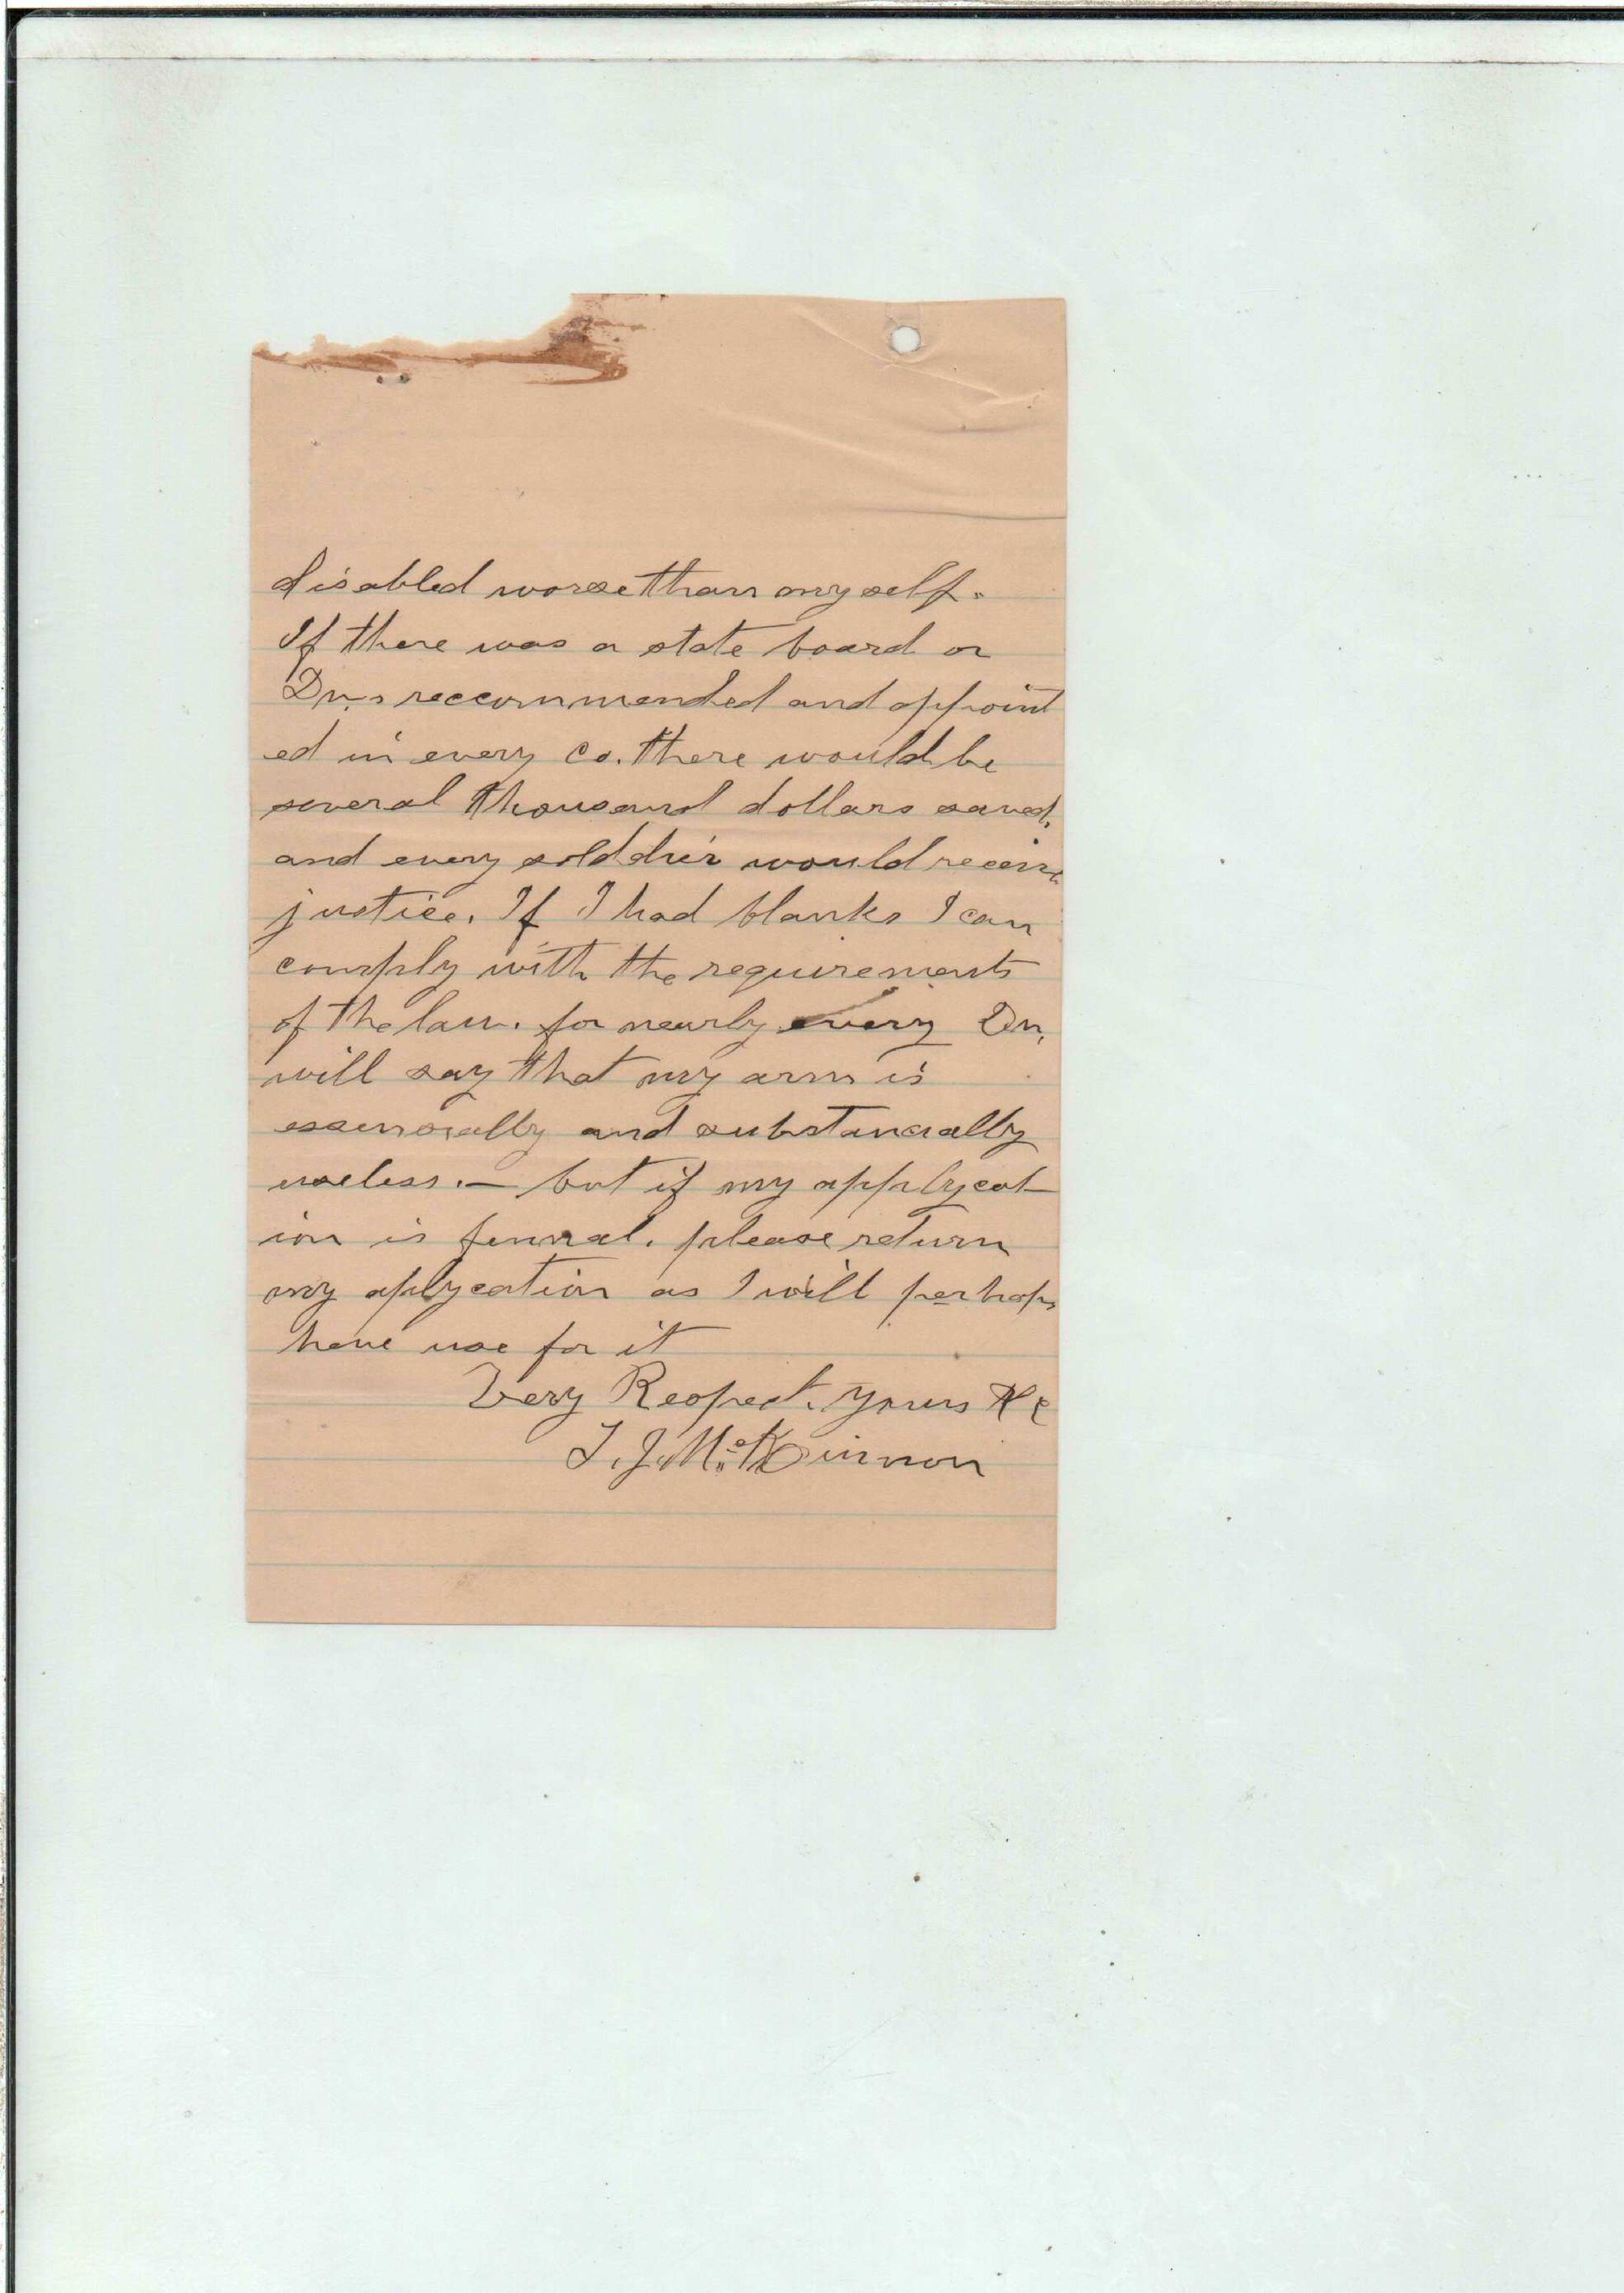 disabled worse than my self.
If there was a state board or
Drs reccommended and appoint
ed in every co. there would be
several thousand dollars saved.
and every solddier would receive
justice. If I had blanks I can
comply with the requirements
of the law. for nearly every Dr.
will say that my arm is
and substancially
useless. – but if my applycat
ion is . please return
my aplycation as I will perhaps
have use for it
Very Respect. yours &c
J. McKinnon